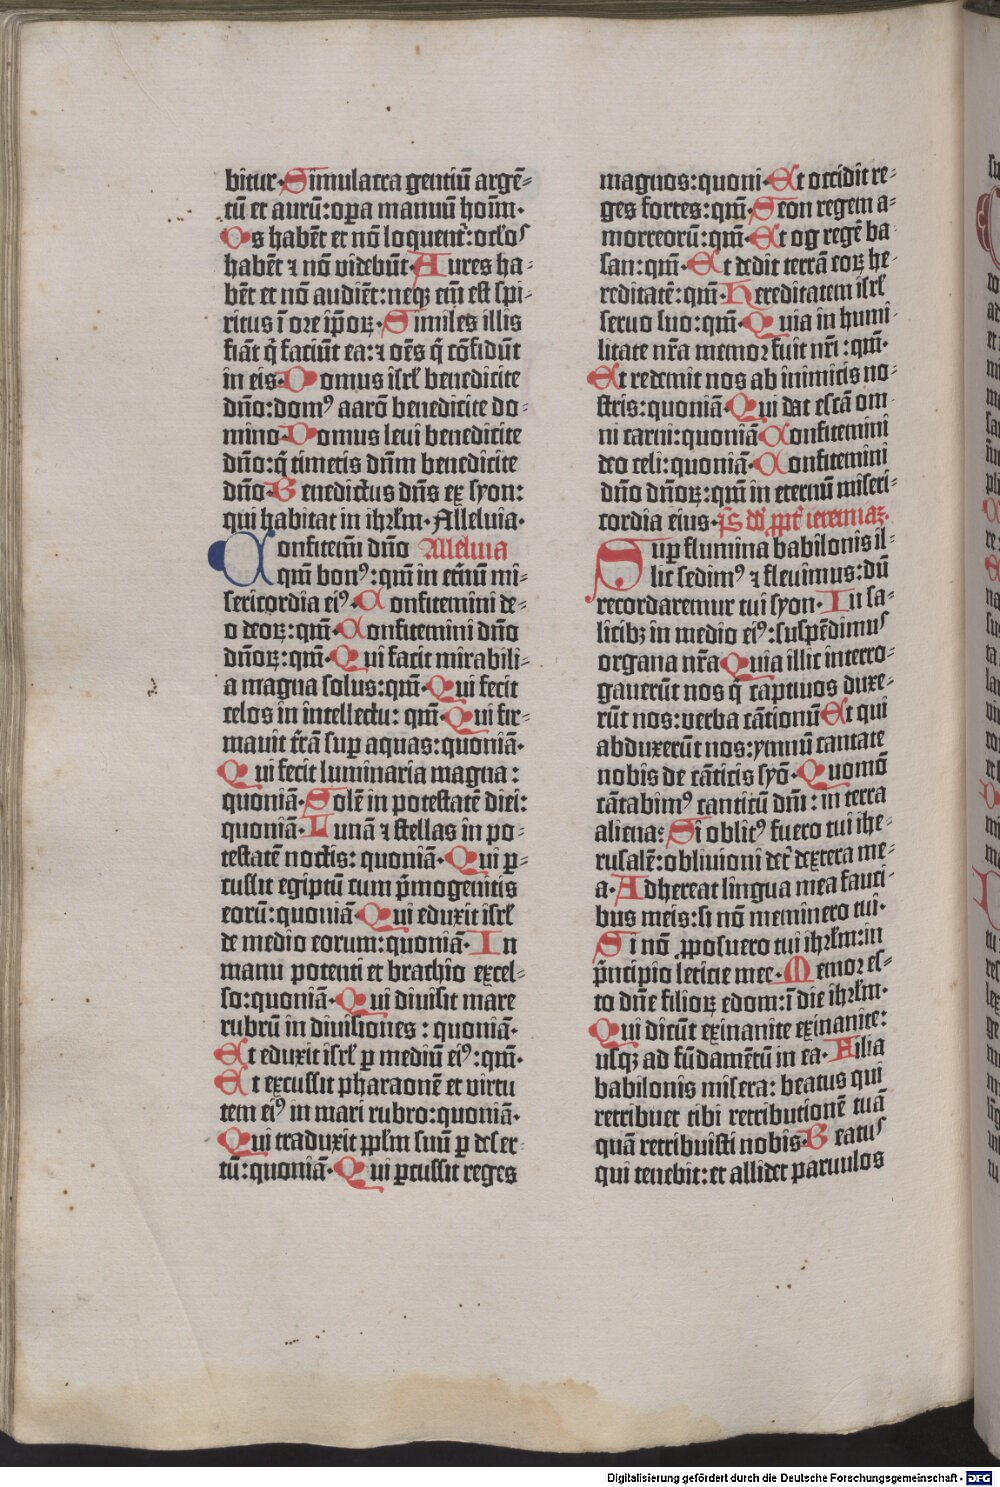 bitur·Simulacra gentiū argē-
tū et aurū:opa manuū hoīm·
Os habēt et nō loquent̄:oclos
habēt ⁊ nō videbūt·Aures ha-
bēt et nō audiēt:neqꝫ em̄ est spi-
ritus ī ore ip̄oꝝ·Similes illis
fiāt q̄ faciūt ea:⁊ oēs q̄ cōfidūt
in eis·Domus isrl̄ benedicite
dn̄o:domꝰ aarō benedicite do-
mino·Domus leui benedicite
dn̄o:q̄ timetis dn̄m benedicite
dn̄o·Benedictus dn̄s ex syon:
qui habitat in ihrl̄m·Alleluia·
Confitem̄i dn̄o Alleluia
qm̄ bonꝰ:qm̄ in et̄nū mi-
sericordia eiꝰ·Confitemini de-
o deoꝝ:qm̄·Confitemini dn̄o
dn̄oꝝ:qm̄·Qui facit mirabili-
a magna solus:qm̄·Qui fecit
celos in intellectu: qm̄·Qui fir-
mauit t̄rā sup aquas:quoniā·
Qui fecit luminaria magna:
quoniā·Solē in potestatē diei:
quoniā·Lunā ⁊ stellas in po-
testatē noctis: quoniā·Qui ꝑ-
cussit egiptū cum p̄mogenitis
eorū:quoniā·Qui eduxit isrl̄
de medio eorum:quoniā·In
manu potenti et brachio excel-
so:quoniā·Qui diuisit mare
rubrū in diuisiones: quoniā·
Et eduxit isrl̄ ꝑ mediū eiꝰ:qm̄·
Et excussit pharaonē et virtu
tem eiꝰ in mari rubro:quoniā·
Qui traduxit ppl̄m suū ꝑ deser-
tū:quoniā·Qui ꝑcussit reges
magnos:quoni·Et occidit re-
ges fortes:qm̄·Seon regem a-
morreorū:qm̄·Et og regē ba-
san:qm̄·Et dedit terrā eoꝝ he-
reditatē:qm̄·Hereditatem isrl̄
seruo suo:qm̄·Quia in humi-
litate nr̄a memor fuit nr̄i:qm̄·
Et redemit nos ab inimicis no-
stris:quoniā·Qui dat escā om
ni carni:quoniā·Confitemini
deo celi:quoniā·Confitemini
dn̄o dn̄oꝝ:qm̄ in eternū miseri-
cordia eius·ps̄ dd̄ ꝓpt̄ ieremiaꝫ·
Sup flumina babilonis il-
lic sedimꝰ ⁊ fleuimus:dū
recordaremur tui syon·In sa-
licibꝫ in medio eiꝰ:suspēdimus
organa nr̄a·Quia illic interro-
gauerūt nos q̄ captiuos duxe-
rūt nos:verba cātionū·Et qui
abduxerūt nos:ymnū cantate
nobis de cāticis syō·Quomō
cātabimꝰ canticū dn̄i: in terra
aliena:Si oblitꝰ fuero tui ihe-
rusalē:obliuioni det̄ dextera me-
a·Adhereat lingua mea fauci-
bus meis:si nō meminero tui·
Si nō ꝓposuero tui ihrl̄m:in
p̄ncipio leticie mee·Memor es-
to dn̄e filioꝝ edom:ī die ihrl̄m·
Qui dicūt exinanite exinanite:
usqꝫ ad fūdamētū in ea·Filia
babilonis misera: beatus qui
retribuet tibi retributionē tuā
quā retribuisti nobis·Beatus
qui tenebit:et allidet paruulos
Digitalisierung gefördert durch die Deutsche Forschungsgemeinschaft - DFG